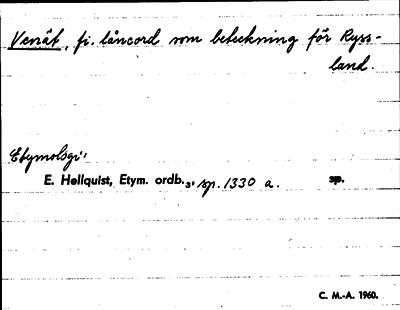 Venät, fi. låneord som beteckning för Ryss-
land.
Etymologi:
E. Hellquist, Etym. ordb.3, sp. 1330 a. sp.
C. M.-A. 1960.